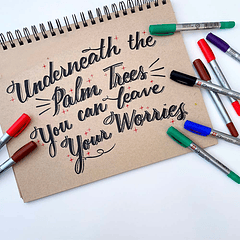 Underneath the
Palm Trees
You can leave
Your Worries